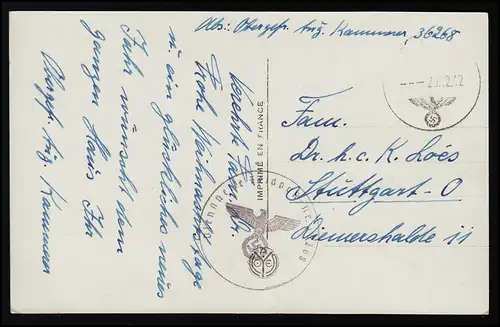 Abs: Obergefr. Aug. Kammerer, 36268
Verehrte Fam. Dr.
Frohe Weihnachtstage
u. ein glückliches neues
Jahr wünscht dem
ganzen Haus Ihr
Obergefr. Aug. Kammerer
IMPRIMÉ EN FRANCE
Fam.
Dr. h. c. K. Loës
Stuttgart-O
Diemershalde 11